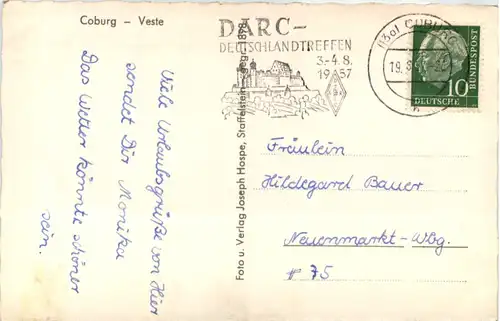 Coburg – Veste
Viele Urlaubsgrüße von Hier
sendet Dir Monika
Das Wetter könnte schöner
sein.
Foto u. Verlag Joseph Hospe, Staffelstein, gegr. 1898
DARC–
DEUTSCHLANDTREFFEN
3.-4.8.
1957
(13a) COBURG
19.8.
DEUTSCHE
BUNDESPOST
10
Fräulein
Hildegard Bauer
Neuenmarkt-Wbg.
# 75